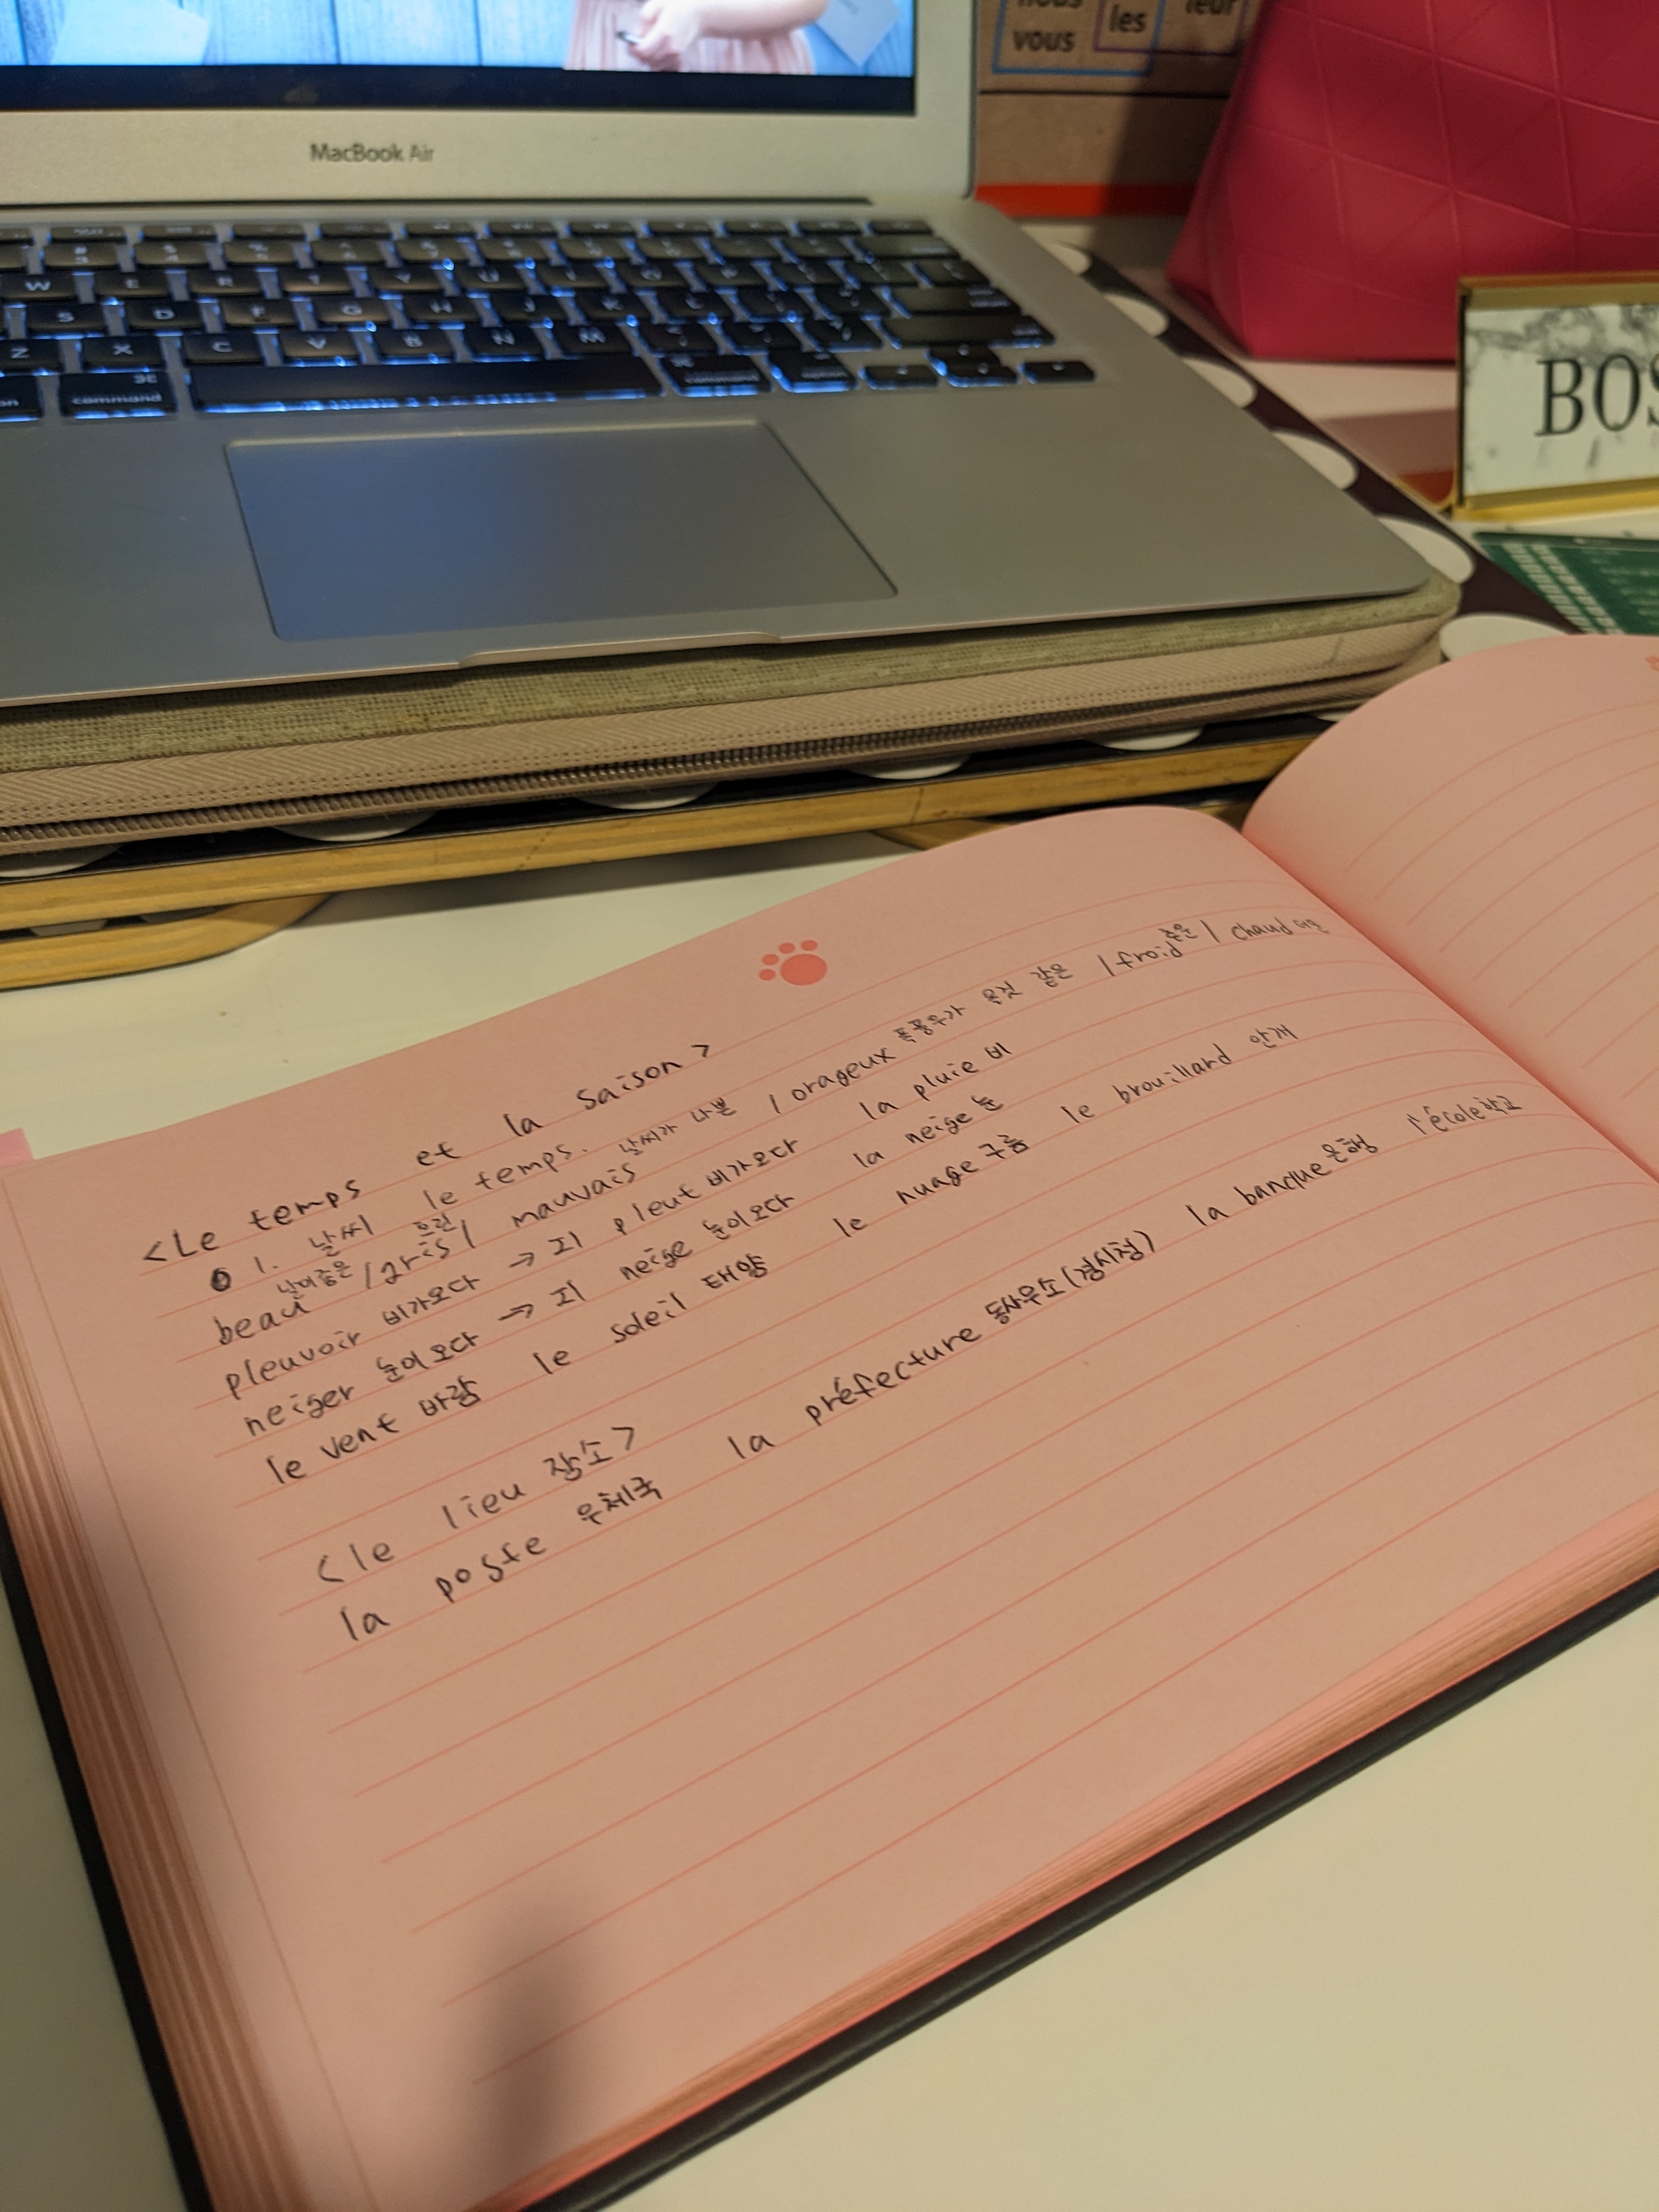 nous
vous
les
leur
MacBook Air
W E R T Y U
S D F G H J K
Z X C V B N M
command
command
BOS
<Le temps et la saison>
1. 날씨 le temps.
beau 날이좋은 / gris 흐린 / mauvais 날씨가 나쁜 / orageux 폭풍우가 올것 같은 / froid 추운 / chaud 더운
pleuvoir 비가오다 → Il pleut 비가오다 la pluie 비
neiger 눈이오다 → Il neige 눈이오다 la neige 눈
le vent 바람 le soleil 태양 le nuage 구름 le brouillard 안개
<le lieu 장소>
la poste 우체국 la préfecture 동사무소(경시청) la banque 은행 l'école 학교